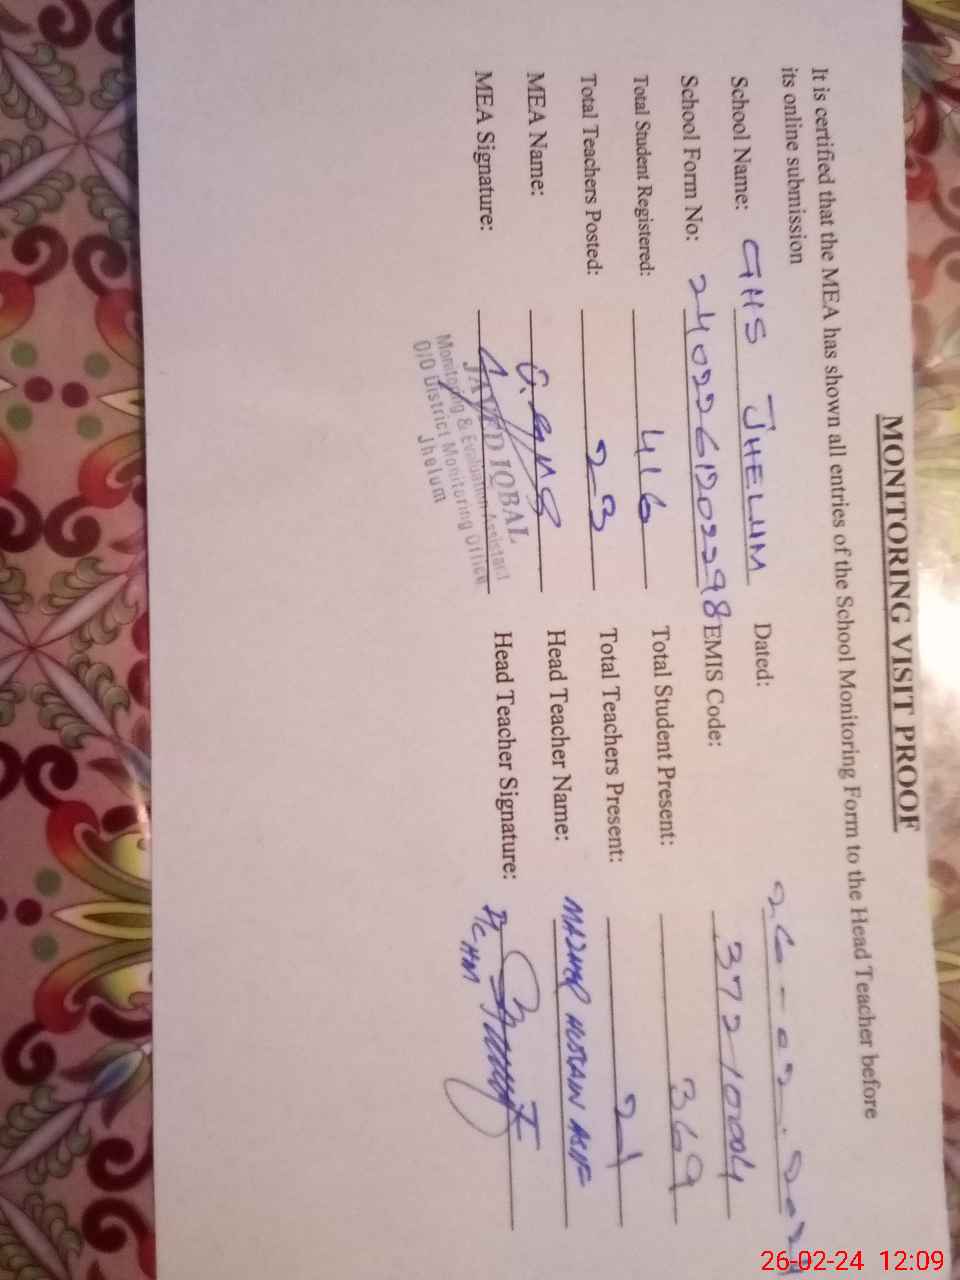 MONITORING VISIT PROOF
It is certified that the MEA has shown all entries of the School Monitoring Form to the Head Teacher before
its online submission
School Name: GHS JHELUM Dated: 26-02-2024
School Form No: EMIS Code: 37210004
Total Student Registered: 416 Total Student Present: 369
Total Teachers Posted: 23 Total Teachers Present: 21
MEA Name: Head Teacher Name:
MEA Signature: Head Teacher Signature:
JAVED IQBAL
Monitoring & Evaluation Assistant
O/O District Monitoring Officer
Jhelum
26-02-24 12:09